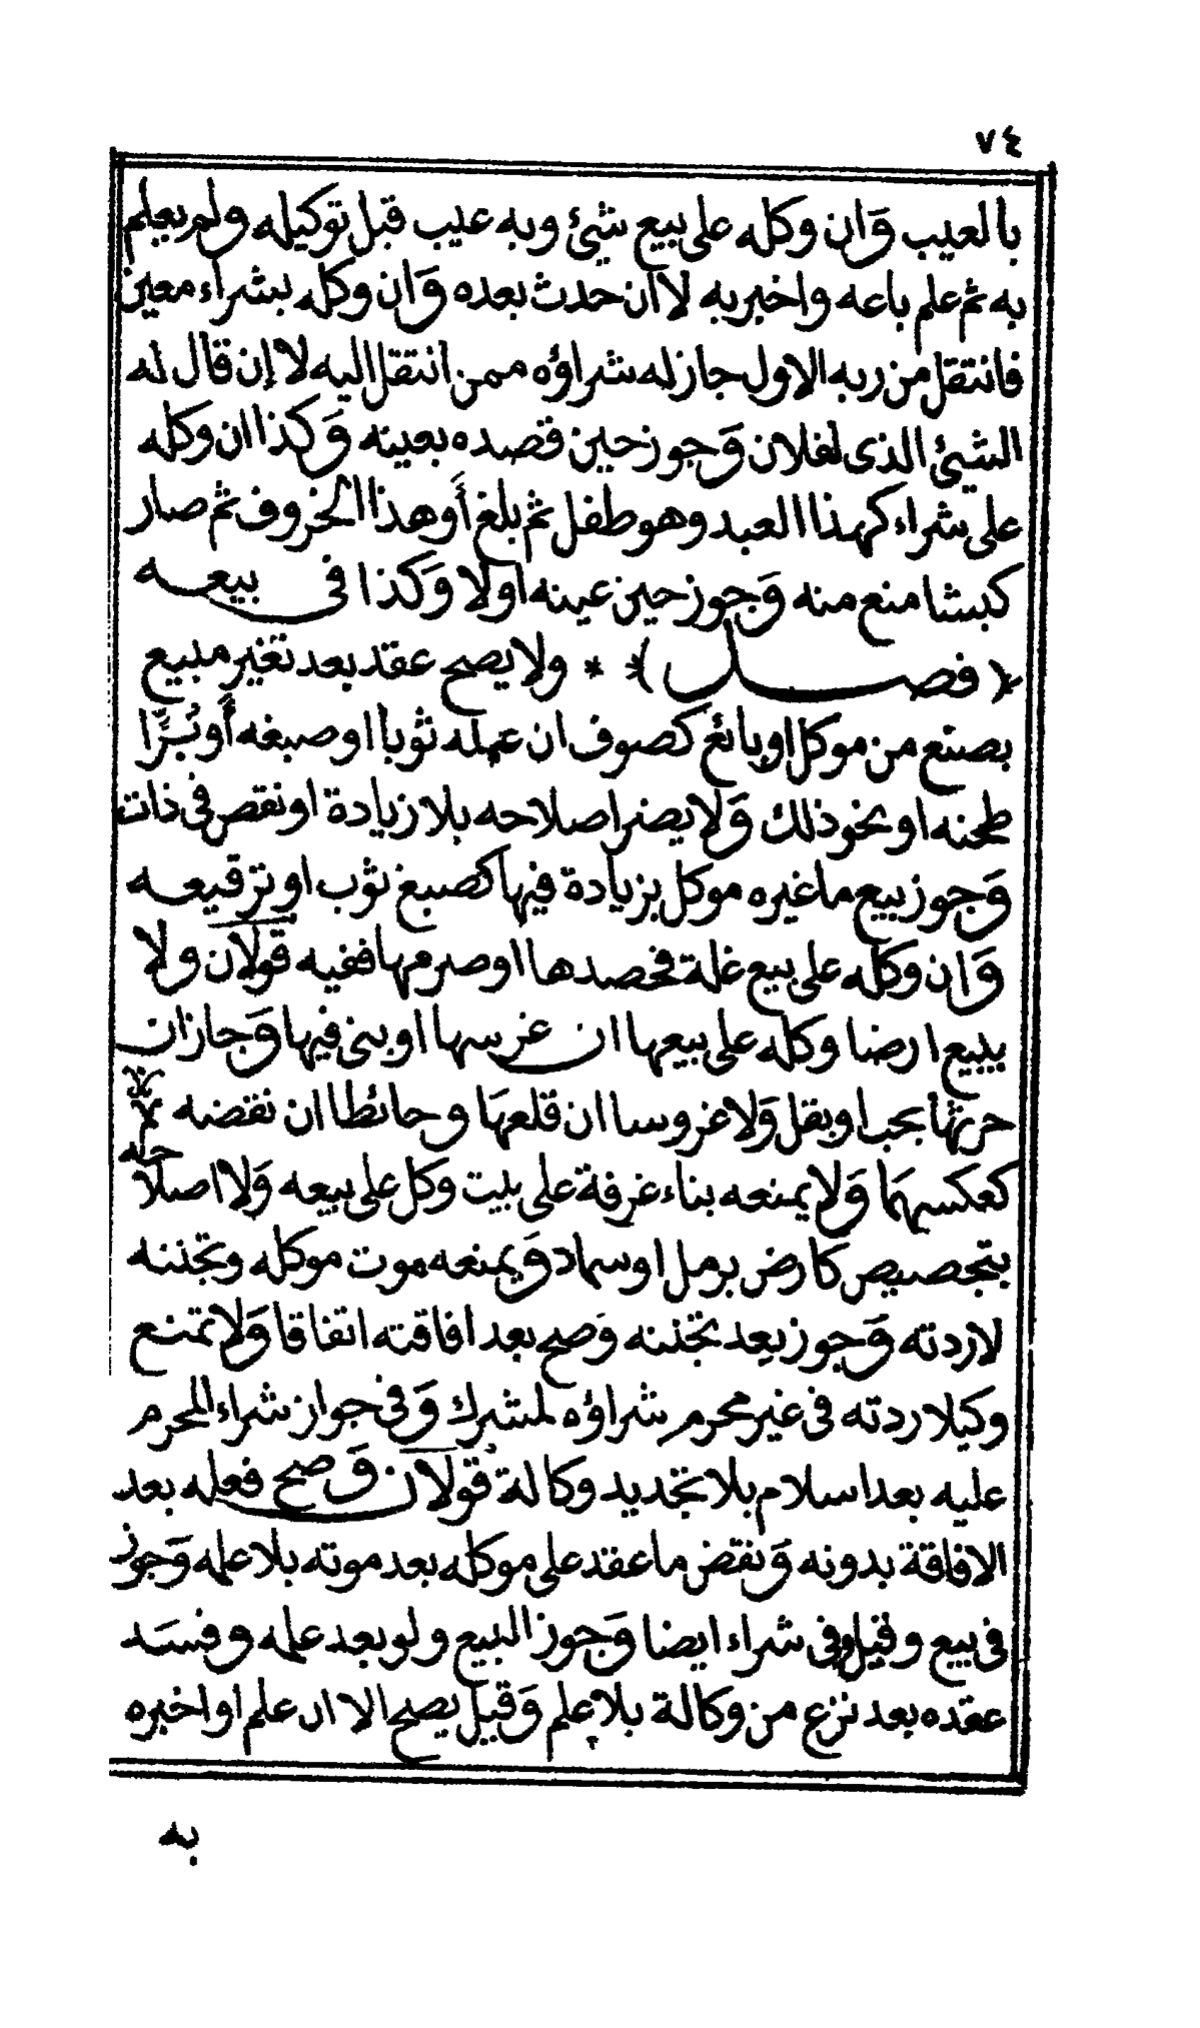 ٧٤
بالعيب وَان وكله على بيع شيئ وبه عيب قبل توكيله ولم يعلم
به ثم علم باعه واخبر به لا ان حدث بعده وَان وكله بشراء معين
فانتقل من ربه الاول جاز له شراؤه ممن انتقل اليه لا إن قال له
الشيئ الذى لفلان وَجوز حين قصده بعينه وَكذا ان وكله
على شراء كهذا العبد وهو طفل ثم بلغ أَو هذا الخروف ثم صار
كبشا منع منه وَجوز حين عينه اولا وَكذا فى بيعه
﴿ فصل ﴾ * ولا يصح عقد بعد تغير مبيع
بصنع من موكل او بائع كصوف ان عمله ثوبا او صبغه أَو بُرًّا
طحنه او نحو ذلك وَلا يضر اصلاحه بلا زيادة او نقص فى ذات
وَجوز بيع ما غيره موكل بزيادة فيها كصبغ ثوب او ترقيعه
وَان وكله على بيع غلة فحصدها او صرمها ففيه قولان ولا
يبيع ارضا وكله على بيعها ان غرسها او بنى فيها وَجاز ان
حرثها بحب او بقل وَلا غروسا ان قلعها وحائطا ان نقضه
كعكسهما وَلا يمنعه بناء غرفة على بيت وكل على بيعه وَلا اصلاح
بتجصيص كارض برمل او سماد وَيمنعه موت موكله وتجننه
لا ردته وَجوز بعد تجننه وَصح بعد افاقته اتفاقا وَلا تمنع
وكيلا ردته فى غير محرم شراؤه لمشرك وَفى جواز شراء المحرم
عليه بعد اسلام بلا تجديد وكالة قولان وَصح فعله بعد
الافاقة بدونه وَنقض ما عقد على موكله بعد موته بلا علمه وَجوز
فى بيع وقيل وفى شراء ايضا وَجوز البيع ولو بعد علمه وفسد
عقده بعد نزع من وكالة بلا علم وَقيل يصح الا ان علم او اخبره
به